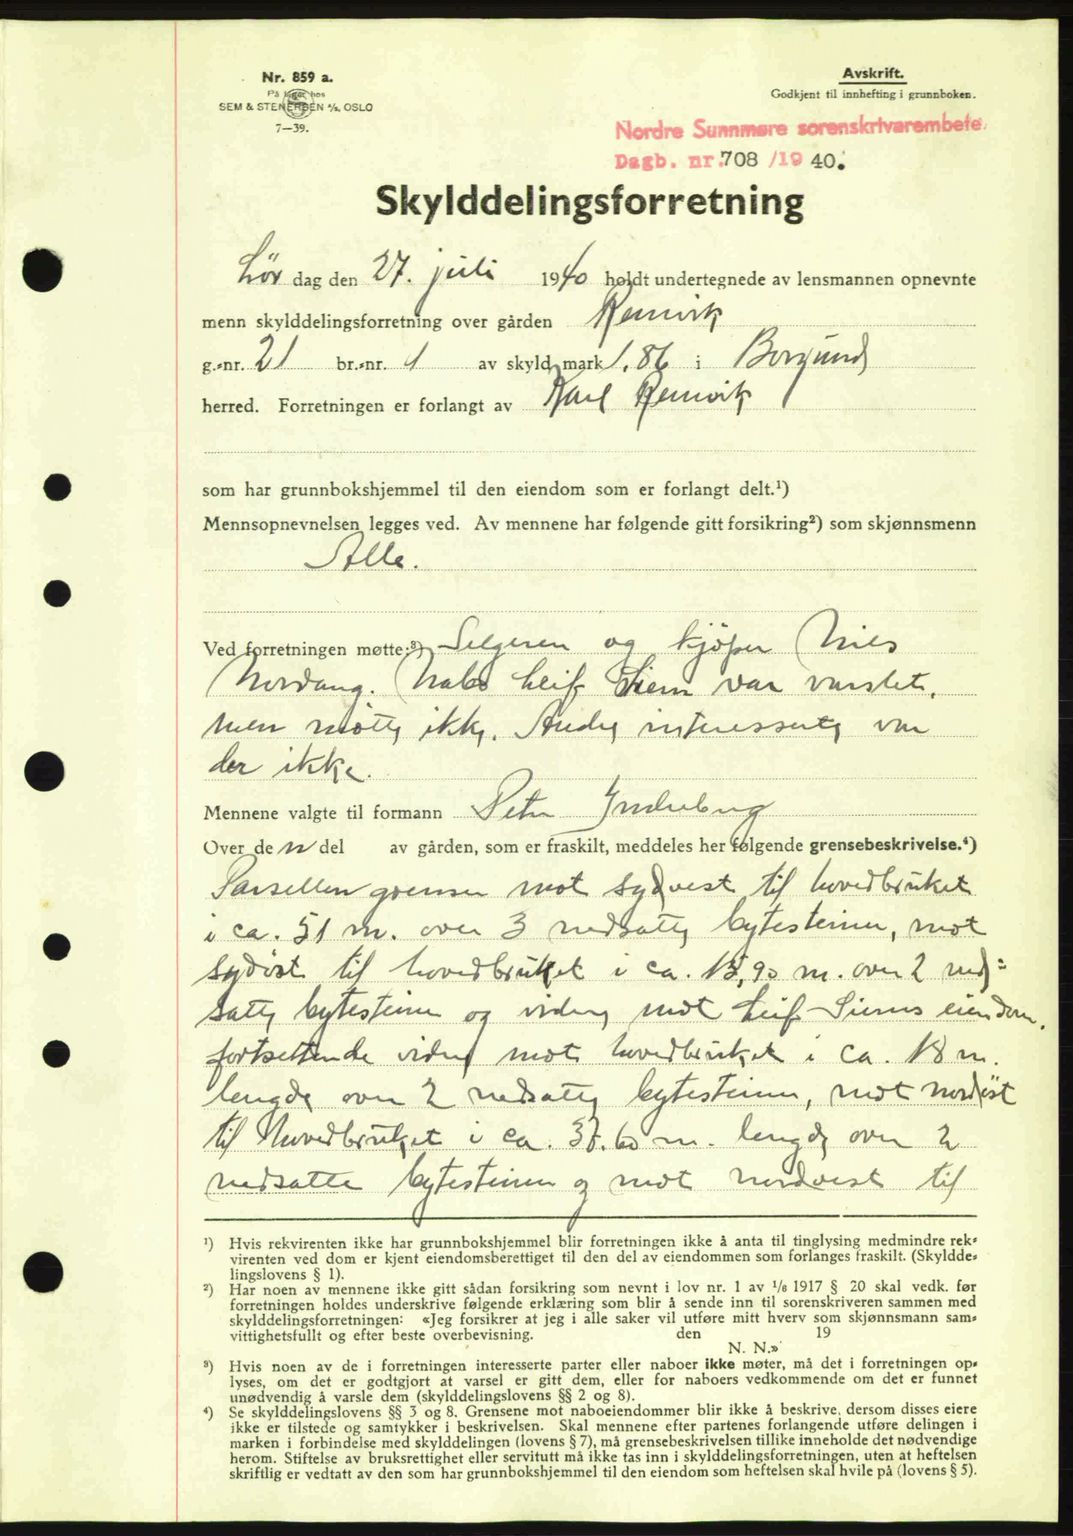 Nr. 859 a.
På lager hos
SEM & STENERSEN A/S, OSLO
7—39.
Avskrift.
Godkjent til innhefting i grunnboken.
Nordre Sunnmøre sorenskriverembete
Dagb. nr. 708 /19 40.
Skylddelingsforretning
Lør dag den 27. juli 1940 holdt undertegnede av lensmannen opnevnte
menn skylddelingsforretning over gården Remvik
g.-nr. 21 br.-nr. 1 av skyld mark 1.86 i Borgund
herred. Forretningen er forlangt av Karl Remvik
som har grunnbokshjemmel til den eiendom som er forlangt delt.¹)
Mennsopnevnelsen legges ved. Av mennene har følgende gitt forsikring²) som skjønnsmenn
Alle.
Ved forretningen møtte:³) Selgeren og kjøper Nils
Nordang. Nabo Leif Siem var varslet,
men møtte ikke. Andre interesserte var
der ikke.
Mennene valgte til formann Peter Indreberg
Over den del av gården, som er fraskilt, meddeles her følgende grensebeskrivelse.⁴)
Parsellen grenser mot sydvest til hovedbruket
i ca. 51 m. over 3 nedsatte bytesteiner, mot
sydøst til hovedbruket i ca. 15,90 m. over 2 ned=
satte bytesteiner og videre mot Leif Siems eiendom.
fortsettende videre mot hovedbruket i ca. 18 m.
lengde over 2 nedsatte bytesteiner, mot nordøst
til hovedbruket i ca. 37.60 m. lengde over 2
nedsatte bytesteiner og mot nordvest til
¹) Hvis rekvirenten ikke har grunnbokshjemmel blir forretningen ikke å anta til tinglysing medmindre rek-
virenten ved dom er kjent eiendomsberettiget til den del av eiendommen som forlanges fraskilt. (Skyldde-
lingslovens § 1).
²) Har noen av mennene ikke gitt sådan forsikring som nevnt i lov nr. 1 av 1/6 1917 § 20 skal vedk. før
forretningen holdes underskrive følgende erklæring som blir å sende inn til sorenskriveren sammen med
skylddelingsforretningen: «Jeg forsikrer at jeg i alle saker vil utføre mitt hverv som skjønnsmann sam-
vittighetsfullt og efter beste overbevisning. den 19
N. N.»
³) Hvis noen av de i forretningen interesserte parter eller naboer ikke møter, må det i forretningen op-
lyses, om det er godtgjort at varsel er gitt dem, eller for naboers vedkommende om det er funnet
unødvendig å varsle dem (skylddelingslovens §§ 2 og 8).
⁴) Se skylddelingslovens §§ 3 og 8. Grensene mot naboeiendommer blir ikke å beskrive, dersom disses eiere
ikke er tilstede og samtykker i beskrivelsen. Skal mennene efter partenes forlangende utføre delingen i
marken i forbindelse med skylddelingen (lovens § 7), må grensebeskrivelsen tillike inneholde det nødvendige
herom. Stiftelse av bruksrettighet eller servitutt må ikke tas inn i skylddelingsforretningen, uten at heftelsen
skriftlig er vedtatt av den som har grunnbokshjemmel til den eiendom som heftelsen skal hvile på (lovens § 5).